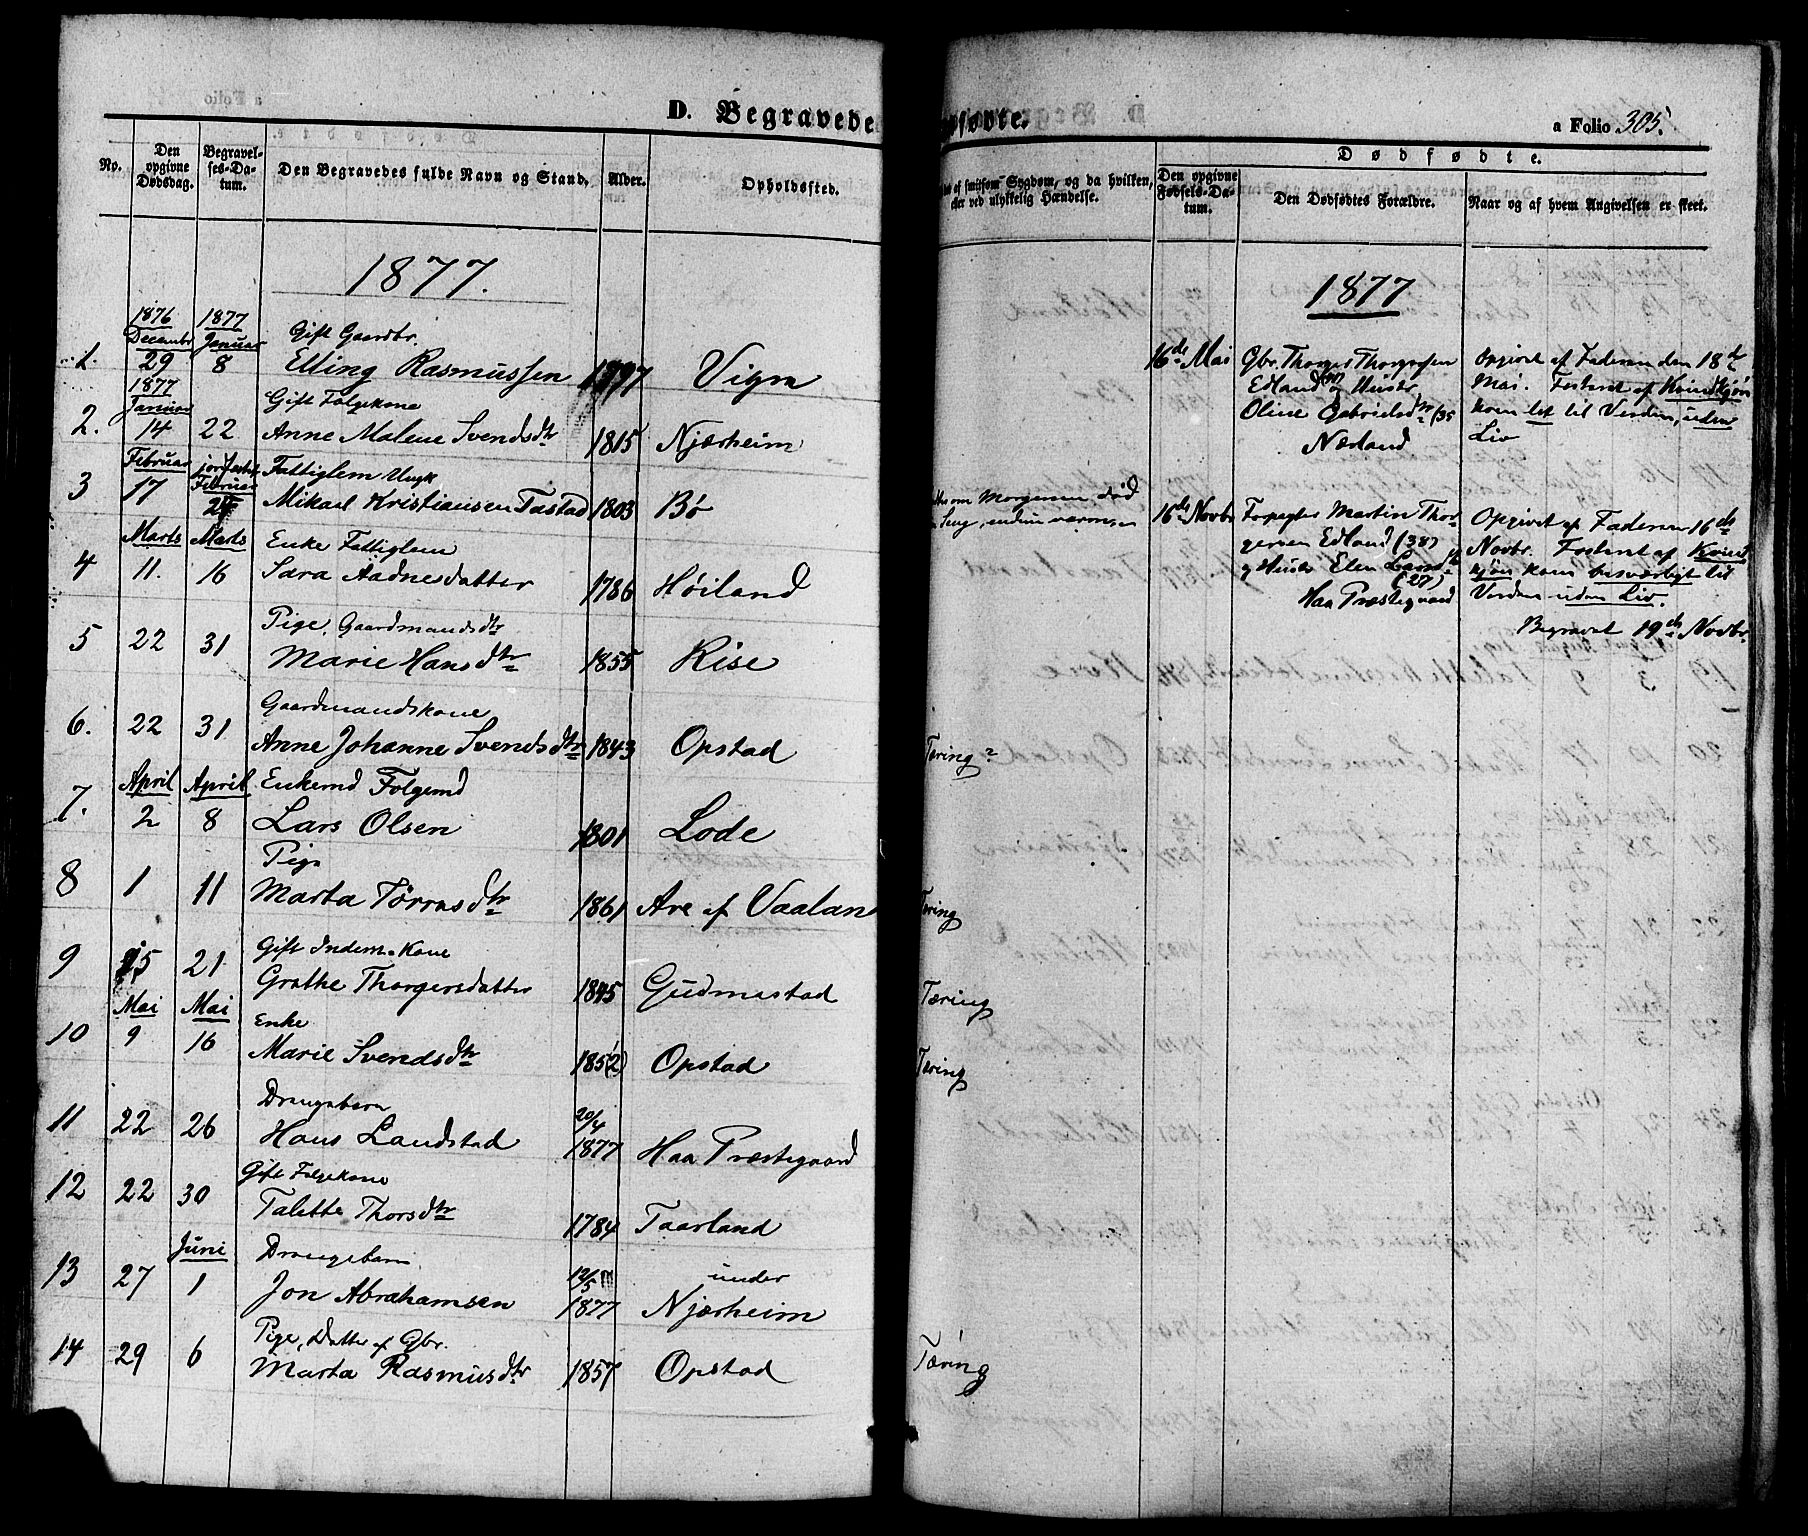 D. Begravede
No.
Den opgivne Dødsdag.
Begravelses-Datum.
Den Begravedes fulde Navn og Stand.
Alder.
Opholdssted.
1877.
1876 1877
Decembr Januar Gift Gaardbr.
1. 29 8 Elling Rasmussen 1797 Vigre
1877
Januar Gift Følgekone
2. 14 22 Anne Malene Svendsdtr 1815 Njærheim
Februar Februar Fattiglem Ungk
3 17 Mikael Kristiansen Tastad 1803 Bø
Marts Marts Enke Fattiglem
4 11. 16 Sara Aadnesdatter 1786 Høiland
Pige, Gaardmandsdtr
5 22 31 Marie Hansdtr 1855 Rise
Gaardmandskone
6. 22 31 Anne Johanne Svendsdtr 1843 Opstad
April April Enkemd Følgemd
7. 2 8 Lars Olsen 1801 Lode
Pige
8 1 11 Marta Tørresdtr 1861 Are af Vaalan
Gift Indern. Kone
9 15 21 Grethe Thorgersdatter 1845 Gudmestad
Mai Mai Enke
10 9 16 Marie Svendsdtr 185(2) Opstad
Drengebarn 20/4
11 22 26 Hans Landstad 1877 Haa Præstegaard
Gift Følgekone
12 22 30 Talette Thorsdtr 1784 Taarland
Juni Drengebarn 12/5 under
13 27 1 Jon Abrahamsen 1877 Njærheim
Pige, Datter af Gbr.
14 29 6 Marta Rasmusdtr 1857 Opstad
pfødte.
a Folio 305.
af smitsom Sygdom, og da hvilken,
eller ved ulykkelig Hændelse.
Dødfødte.
Den opgivne Fødsels-Datum.
Den Dødfødtes Forældre.
Naar og af hvem Angivelsen er skeet.
1877
16de Mai
Gbr. Thorger Thorgersen
Edland og Hustr
Oline Gabrielsdtr (35
Nærland
Opgivet af Faderen den 18de
Mai. Fosteret af Kvindkjøn
kom let til Verden, uden
Liv
om Morgenen død
Seng, endnu varm
16de Novbr
Forpagter Martin Thorgersen
Edland (38)
og Hustr Elen Larsdtr
(27)
Haa Præstegaard
Opgivet af Faderen 16de
Novbr. Fosteret af Kvindkjøn
kom besværligt til
Verden uden Liv.
Begravet 19de Novbr
Tæring?
Tæring
Tæring
Tæring
Tæring